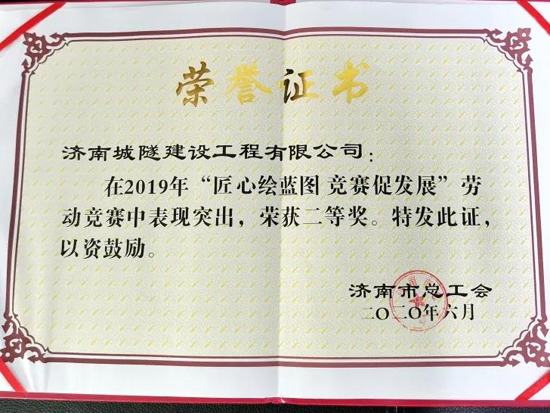 荣誉证书
济南城隧建设工程有限公司：
在2019年“匠心绘蓝图 竞赛促发展”劳
动竞赛中表现突出，荣获二等奖。特发此证，
以资鼓励。
济南市总工会
二〇二〇年六月